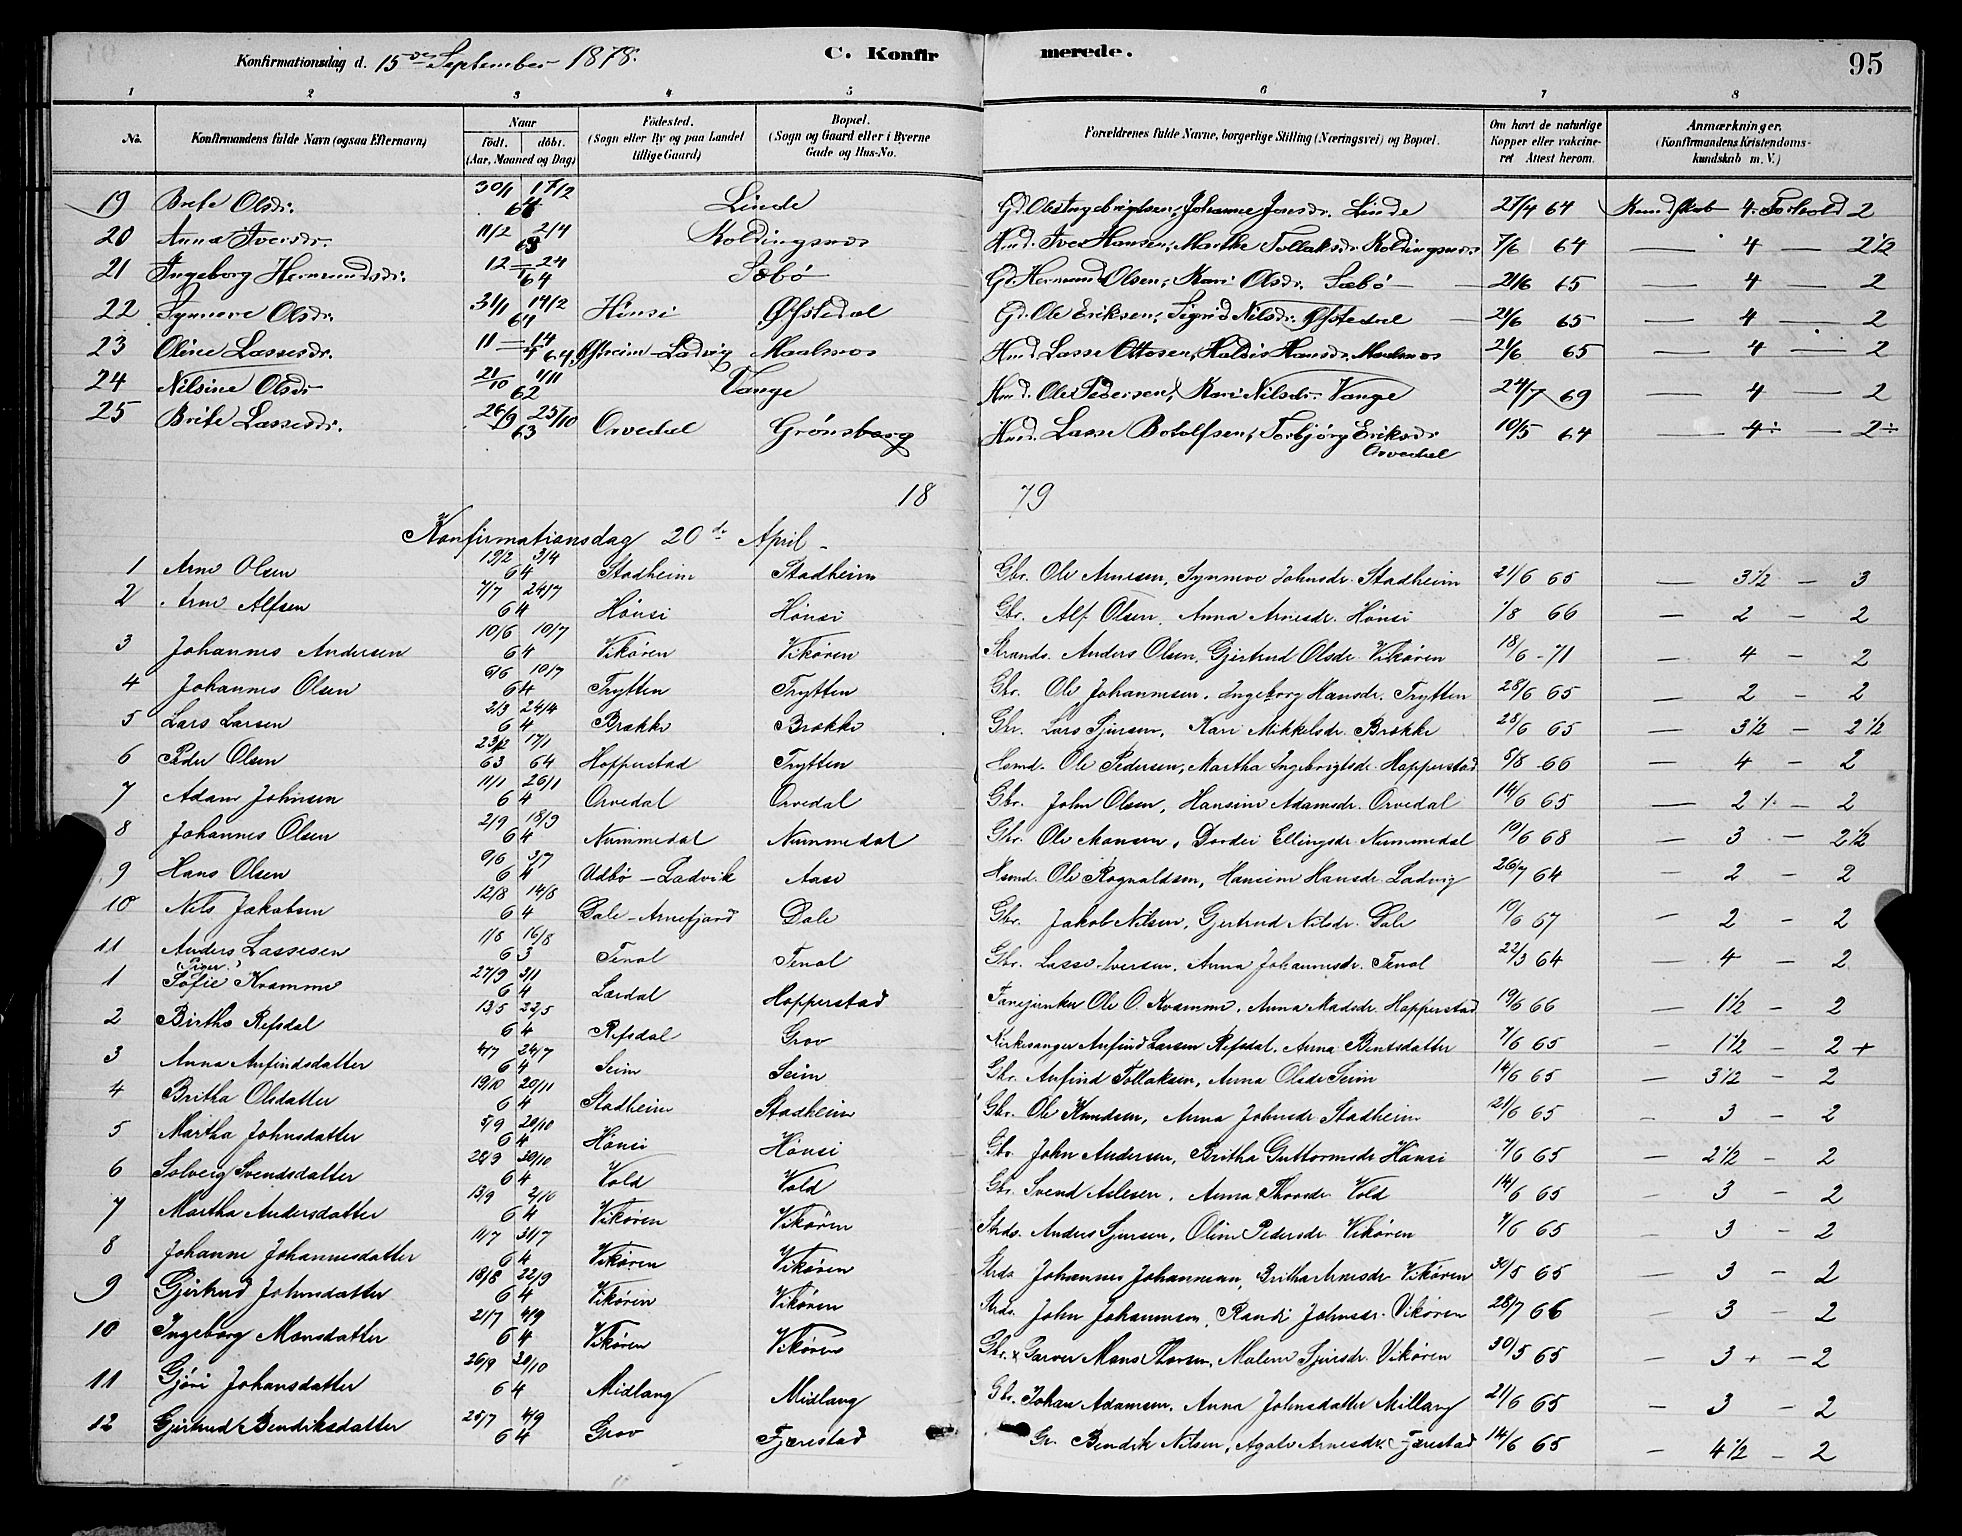 Konfirmationsdag d. 15de September 1878. C. Konfirmerede. 95
1 2 3 4 5 6 7 8
No. Konfirmandens fulde Navn (ogsaa Efternavn) Naar födt. döbt. (Aar, Maaned og Dag) Födested. (Sogn eller By og paa Landet tillige Gaard) Bopæl. (Sogn og Gaard eller i Byerne Gade og Hus-No. Forældrenes fulde Navne, borgerlige Stilling (Næringsvei) og Bopæl. Om havt de naturlige Kopper eller vakcineret Attest herom. Anmærkninger. (Konfirmandens Kristendomskundskab m. V.)
19 Brite Olsdr. 30/1 17/2 64 Linde Gd. Ole Ingebrigtsen, Johanne Jonsdr. Linde 27/4 64 Kundskab 4. Forhold 2
20 Anna Iversdr. 11/2 2/4 63 Koldingsnæs Hmd. Iver Hansen, Marthe Tollaksdr. Koldingsnæs 7/6 64 — 4 — 2 1/2
21 Ingeborg Hermundsdr. 12 = 24 64 Sæbö Gd. Hermund Olsen, Kari Olsdr. Sæbö 21/6 65 — 4 — 2
22 Synneve Olsdr. 31/1 14/2 64 Hönsi Øfstedal Gd. Ole Eriksen, Sigrid Nilsdr. Øfstedal 21/6 65 — 4 — 2
23 Oline Lassesdr. 11 = 14 4 64 Øfreim-Ladvig Maalsnæs Hmd Lasse Ottosen, Haldis Hansdr. Maalsnæs 21/6 65 — 4 — 2
24 Nilsine Olsdr 21/10 1/11 62 Vange Hmd. Ole Pedersen, Kari Nilsdr. Vange 24/7 69 — 4 — 2
25 Brite Lassesdr. 26/9 25/10 63 Orvedal Grönsberg Hmd. Lasse Botolfsen, Torbjörg Eriksdr Orvedal 10/5 64 — 4÷ — 2÷
18 79
Konfirmationsdag 20de April
1 Arne Olsen 19/2 3/4 64 Stadheim Stadheim Gbr. Ole Arnesen, Synneve Johnsdr. Stadheim 21/6 65 — 3 1/2 — 3
2 Arne Alfsen 7/7 24/7 64 Hönsi Hönsi Gbr. Alf Olsen, Anna Arnesdr. Hönsi 1/8 66 — 2 — 2
3 Johannes Andersen 10/6 10/7 64 Vikören Vikören Strands. Anders Olsen, Gjertrud Olsdr. Vikören 18/6 -71 — 4 — 2
4 Johannes Olsen 6/6 10/7 64 Trytten Trytten Gbr. Ole Johannesen, Ingeborg Hansdr. Trytten 28/6 65 — 2 — 2
5 Lars Larsen 2/3 24/4 64 Brække Brække Gbr. Lars Sjursen, Kari Mikkelsdr. Brække 28/6 65 — 3 1/2 — 2 1/2
6 Peder Olsen 23/12 17/1 63 64 Hopperstad Trytten Hsmd. Ole Pedersen, Martha Ingebrigtsdr. Hopperstad 8/8 66 — 4 — 2
7 Adam Johnsen 11/1 26/1 64 Orvedal Orvedal Gbr. John Olsen, Hansine Adamsdr. Orvedal 14/6 65 — 2 ⁒ — 2
8 Johannes Olsen 2/9 18/9 64 Nummedal Nummedal Gbr. Ole Monsen, Dordei Ellingsdr Nummedal 19/6 68 — 3 — 2 1/2
9 Hans Olsen 9/6 3/7 64 Udbö - Ladvik Aase Hsmd. Ole Rognaldsen, Hansine Hansdr. Ladvig 26/7 64 — 2 — 2
10 Nils Jakobsen 12/8 14/8 64 Dale-Arnefjord Dale Gbr. Jakob Nilsen, Gjertrud Nilsdr. Dale 19/6 67 — 2 — 2
11 Anders Lassesen 1/8 16/8 63 Tenol Tenol Gbr. Lasse Iversen, Anna Johannesdr. Tenol 22/3 64 — 4 — 2
(Piger.)
1 Sofie Kvamme 27/9 3/1 64 Lærdal Hopperstad Fanejunker Ole O. Kvamme, Anna Madsdr. Hopperstad 19/6 66 — 1 1/2 — 2
2 Birthe Refsdal 13/5 22/5 64 Refsdal Grov Kirkesanger Anfind Larsen Refsdal, Anna Bentsdatter 7/6 65 — 1 1/2 — 2 +
3 Anna Anfindsdatter 4/7 24/7 64 Seim Seim Gbr. Anfind Tollaksen, Anna Olsdr Seim 14/6 65 — 3 1/2 — 2
4 Britha Olsdatter 19/10 20/11 64 Stadheim Stadheim Gbr. Ole Knudsen, Anna Johnsdr Stadheim 21/6 65 — 3 — 2
5 Martha Johnsdatter 8/9 20/10 64 Hönsi Hönsi Gbr. John Andersen, Britha Guttormsdr Hönsi 7/6 65 — 2 1/2 — 2
6 Solveig Svendsdatter 22/9 30/10 64 Vold Vold Gbr. Svend Aslesen, Anna Thorsdr Vold 14/6 65 — 3 — 2
7 Martha Andersdatter 13/9 2/10 64 Vikören Vikören Strds. Anders Sjursen, Oline Pedersdr Vikören 7/6 65 — 3 — 2
8 Johanne Johannesdatter 11/7 31/7 64 Vikören Vikören Strds Johannes Johannesen, Britha Arnesdr Vikören 30/5 65 — 3 — 2
9 Gjertrud Johnsdatter 18/8 22/9 64 Vikören Vikören Strds. John Johannesen, Randi Johnsdr. Vikören 28/7 66 — 3 — 2
10 Ingeborg Monsdatter 21/7 4/9 64 Vikören Vikören Gbr. x Garver Mons Thorsen, Malene Sjursdr. Vikören 30/5 65 — 3 + — 2
11 Gjöri Johansdatter 26/9 20/10 64 Midlang Midlang Gbr. Johan Adamsen, Anna Johnsdatter Millang 21/6 65 — 3 — 2
12 Gjertrud Bendiksdatter 25/7 4/9 64 Grov Fjærestad Gr. Bendik Nilsen, Agate Arnesdr. Fjærestad 14/6 65 — 4 1/2 — 2